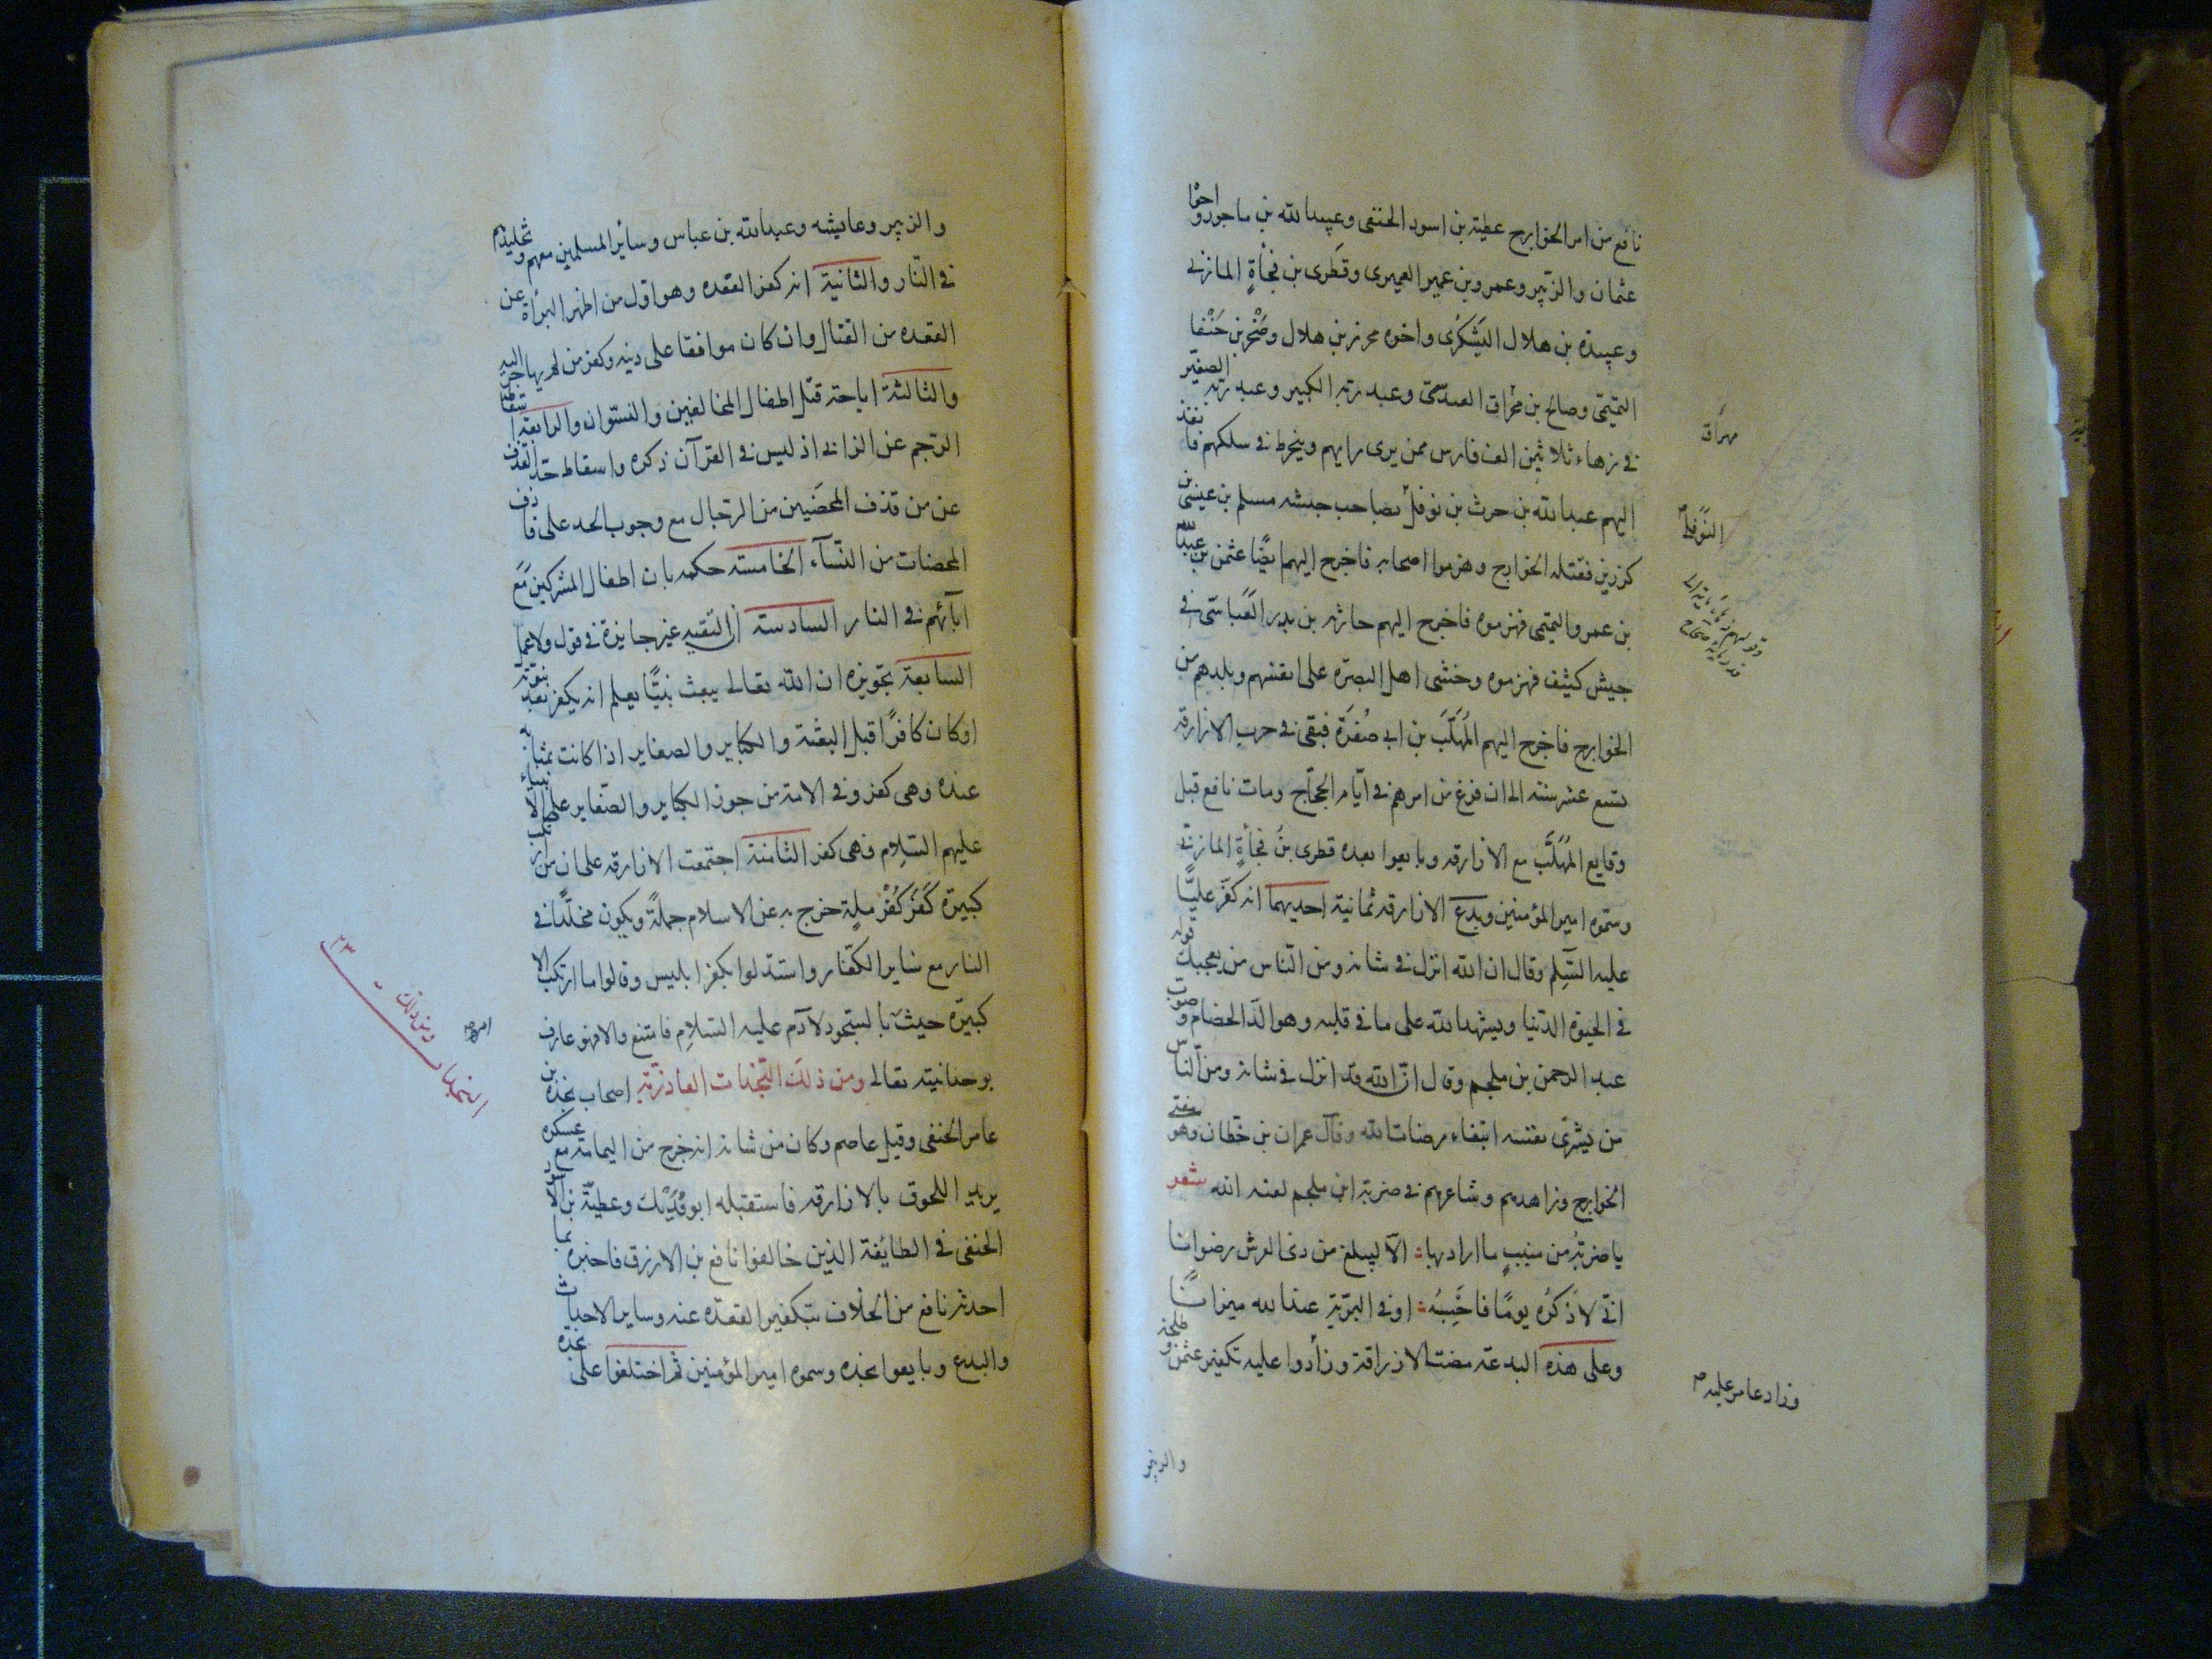 نافع من امر الخوارج عطية بن اسود الحنفى وعبيد الله بن ماجوز واخوا
عثمان والزبير وعمرو بن عمير العميرى وقَطَرى بن فُجأةٍ المازنى
وعبيدة بن هلال اليَشكُرى واخوه محرز بن هلال وصَخْر بن حَنْفا
التميمى وصالح بن مخراق العبدىّ وعبد ربّه الكبير وعبد ربّه الصغير
فى زهاء ثلاثين الف فارس ممن يرى رايهم وينخرط فى سلكهم فانفذ
اليهم عبد الله بن حرث بن نوفل بصاحب جيشه مسلم بن عيسى بن
كزرين فقتله الخوارج وهزموا اصحابه فاخرج اليهم ايضًا عثمن بن عبيد الله
بن عمرو التميمى فهزموه فاخرج اليهم حارثه بن بدر العَبّاسى فى
جيش كثيف فهزموه وخشى اهل البصرَه على انفسهم وبلدهم من
الخوارج فاخرج اليهم المُهَلَّبَ بن ابى صُفرَة فبقى فى حرب الازارقه
تسع عشر سنه الى ان فرغ من امرهم فى ايّام الحجّاج ومات نافع قبل
وقايع المُهَلَّب مع الازارقه وبايعوا بعده قطرى بنُ فُجأةٍ المازنى
وسمّوه امير المؤمنين وبِدَع الازارقه ثمانية احديهما انه كفّر عليًّا
عليه السّلِم وقال ان الله انزل فى شانه ومن النّاس من يعجبك قوله
فى الحيوة الدّنيا ويشهد الله على ما فى قلبه وهو الدّ الخصام وصوّب
عبد الرحمن بن ملجم وقال انّ الله قد انزل فى شانه ومن النّاس
من يشرى نفسه ابتغاء مرضات الله وقال عمران بن حَطّان وهو مفتى
الخوارج وزاهدهم وشاعرهم فى ضربة ابن ملجم لعنه الله شعر
يا ضربةً من منيبٍ ما اراد بها الّا ليبلغ من ذى العرش رضوانا
انّى لاذكرُه يومًا فاحْسِبُه اوفى البريّة عند الله ميزانًا
وعلى هذه البدعة مضت الازراقة وزادوا عليه تكفير عثمن وطلحة
والزبير
مهراق
النَّوفلىّ
وزاد عامر عليه
والزبير وعايشه وعبد الله بن عباس وسائر المسلمين معهم وتخليدهم
فى النّار والثانية انه كفر القعده وهو اوّل من اظهر البرأة عن
القعده من القتال وان كان موافقا على دينه وكفر من لم يهاجر اليه
والثالثة اباحته قتل اطفال المخالفين والنّسوان والرابعة اسقاط
الرجم عن الزانى اذ ليس فى القرآن ذكره واسقاط حدّ القذف
عن من قذف المحصَنين من الرجال مع وجوب الحد على قاذف
المحصنات من النّسآء الخامسة حكمه بان اطفال المشركين مَعَ
آبآئهم فى النار السادسة انّ التقيه غير جايزة فى قول ولا عمل
السابعة تجويزه ان الله تعالى يبعث نبيًّا يعلم انه يكفر بعد نبوّته
او كان كافرًا قبل البعثة والكباير والصغاير اذا كانت بمثابه
عنده وهى كفر وفى الامة من جوز الكباير والصّغاير على الانبياء
عليهم السّلام فهى كفر الثامنة اجتمعت الازارقه على ان من ارتكب
كبيرة كَفَر كُفْر ملةٍ خرج به عن الاسلام جملةً ويكون مخلّدًا فى
النار مع سَاير الكفّار واستدلوا بكفر ابليس وقالوا ما ارتكب الا
كبيرة حيث بالسّجود لآدم عليه السّلام فامتنع والا فهو عارف
بوحدانيته تعالى ومن ذلك النّجدات العاذريّة اصحاب نجدة بن
عامر الحنفى وقيل عاصم وكان من شانه انه خرج من اليمامة مع عسكره
يريد اللحوق بالازارقه فاستقبله ابو فُدَيْك وعطيّة بن الاسود
الحنفى فى الطائفة الذين خالفوا نافع بن الازرق فاخبروه بما
احدثه نافع من الخلاف بتكفير القعده عنه وساير الاحداث
والبدع وبايعوا نجده وسموه امير المؤمنين ثم اختلفوا على نجدة
امر
ومن ذلك
النجدات